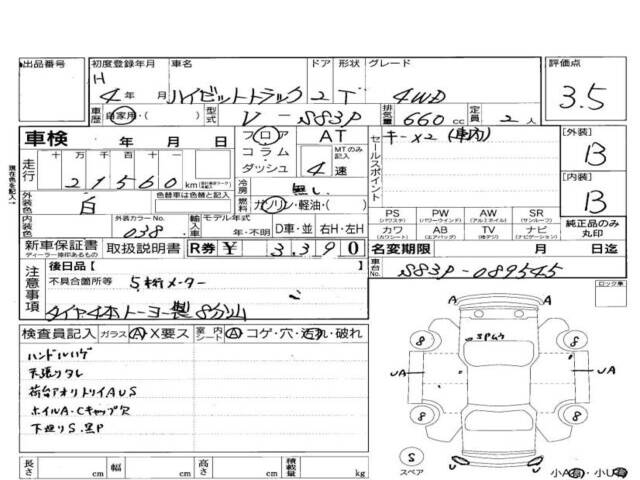 出品番号
初度登録年月 車名 ドア 形状 グレード 評価点
H
4年 月 ハイゼットトラック 2 T 4WD 3.5
車歴 自家用・( ) 型式 V-S83P 排気量 660cc 定員 2人
車検 年 月 日
フロア コラム ダッシュ
AT
MTのみ記入
4速
セールスポイント
キーx2 (車内)
[外装]
B
現在色を記入
走行 十 万 千 百 十 一
21560km
冷房 無し
[内装]
B
外装色 白
色替車は色替と記入
燃料 ガソリン・軽油・( )
外装カラーNo.
038
輸入車 モデル年式
年・不明
D車・並 右H・左H
PS (パワステ) PW (パワーウインド) AW (アルミホイル) SR (サンルーフ)
カワ (カワシート) AB (エアバッグ) TV (地デジ) ナビ (ナビゲーション)
純正品のみ丸印
新車保証書
ディーラー押印あるもの
取扱説明書
R券 ¥ 3,390
名変期限 月 日迄
車台No. S83P-089545
注意事項
後日品【 】
不具合箇所等 5桁メーター
タイヤ4本トーヨー製8分山
ロック車
検査員記入 ガラス A・X要ス 室内シート A コゲ・穴・汚れ・破れ
ハンドルハゲ
天張りタレ
荷台アオリトリイAUS
ホイルA・Cキャップ欠
下廻りS.黒P
A A
UA UA
8 8
8 8
S
スペア
U U
小A有・小U有
長さ cm 幅 cm 高さ cm 積載量 kg